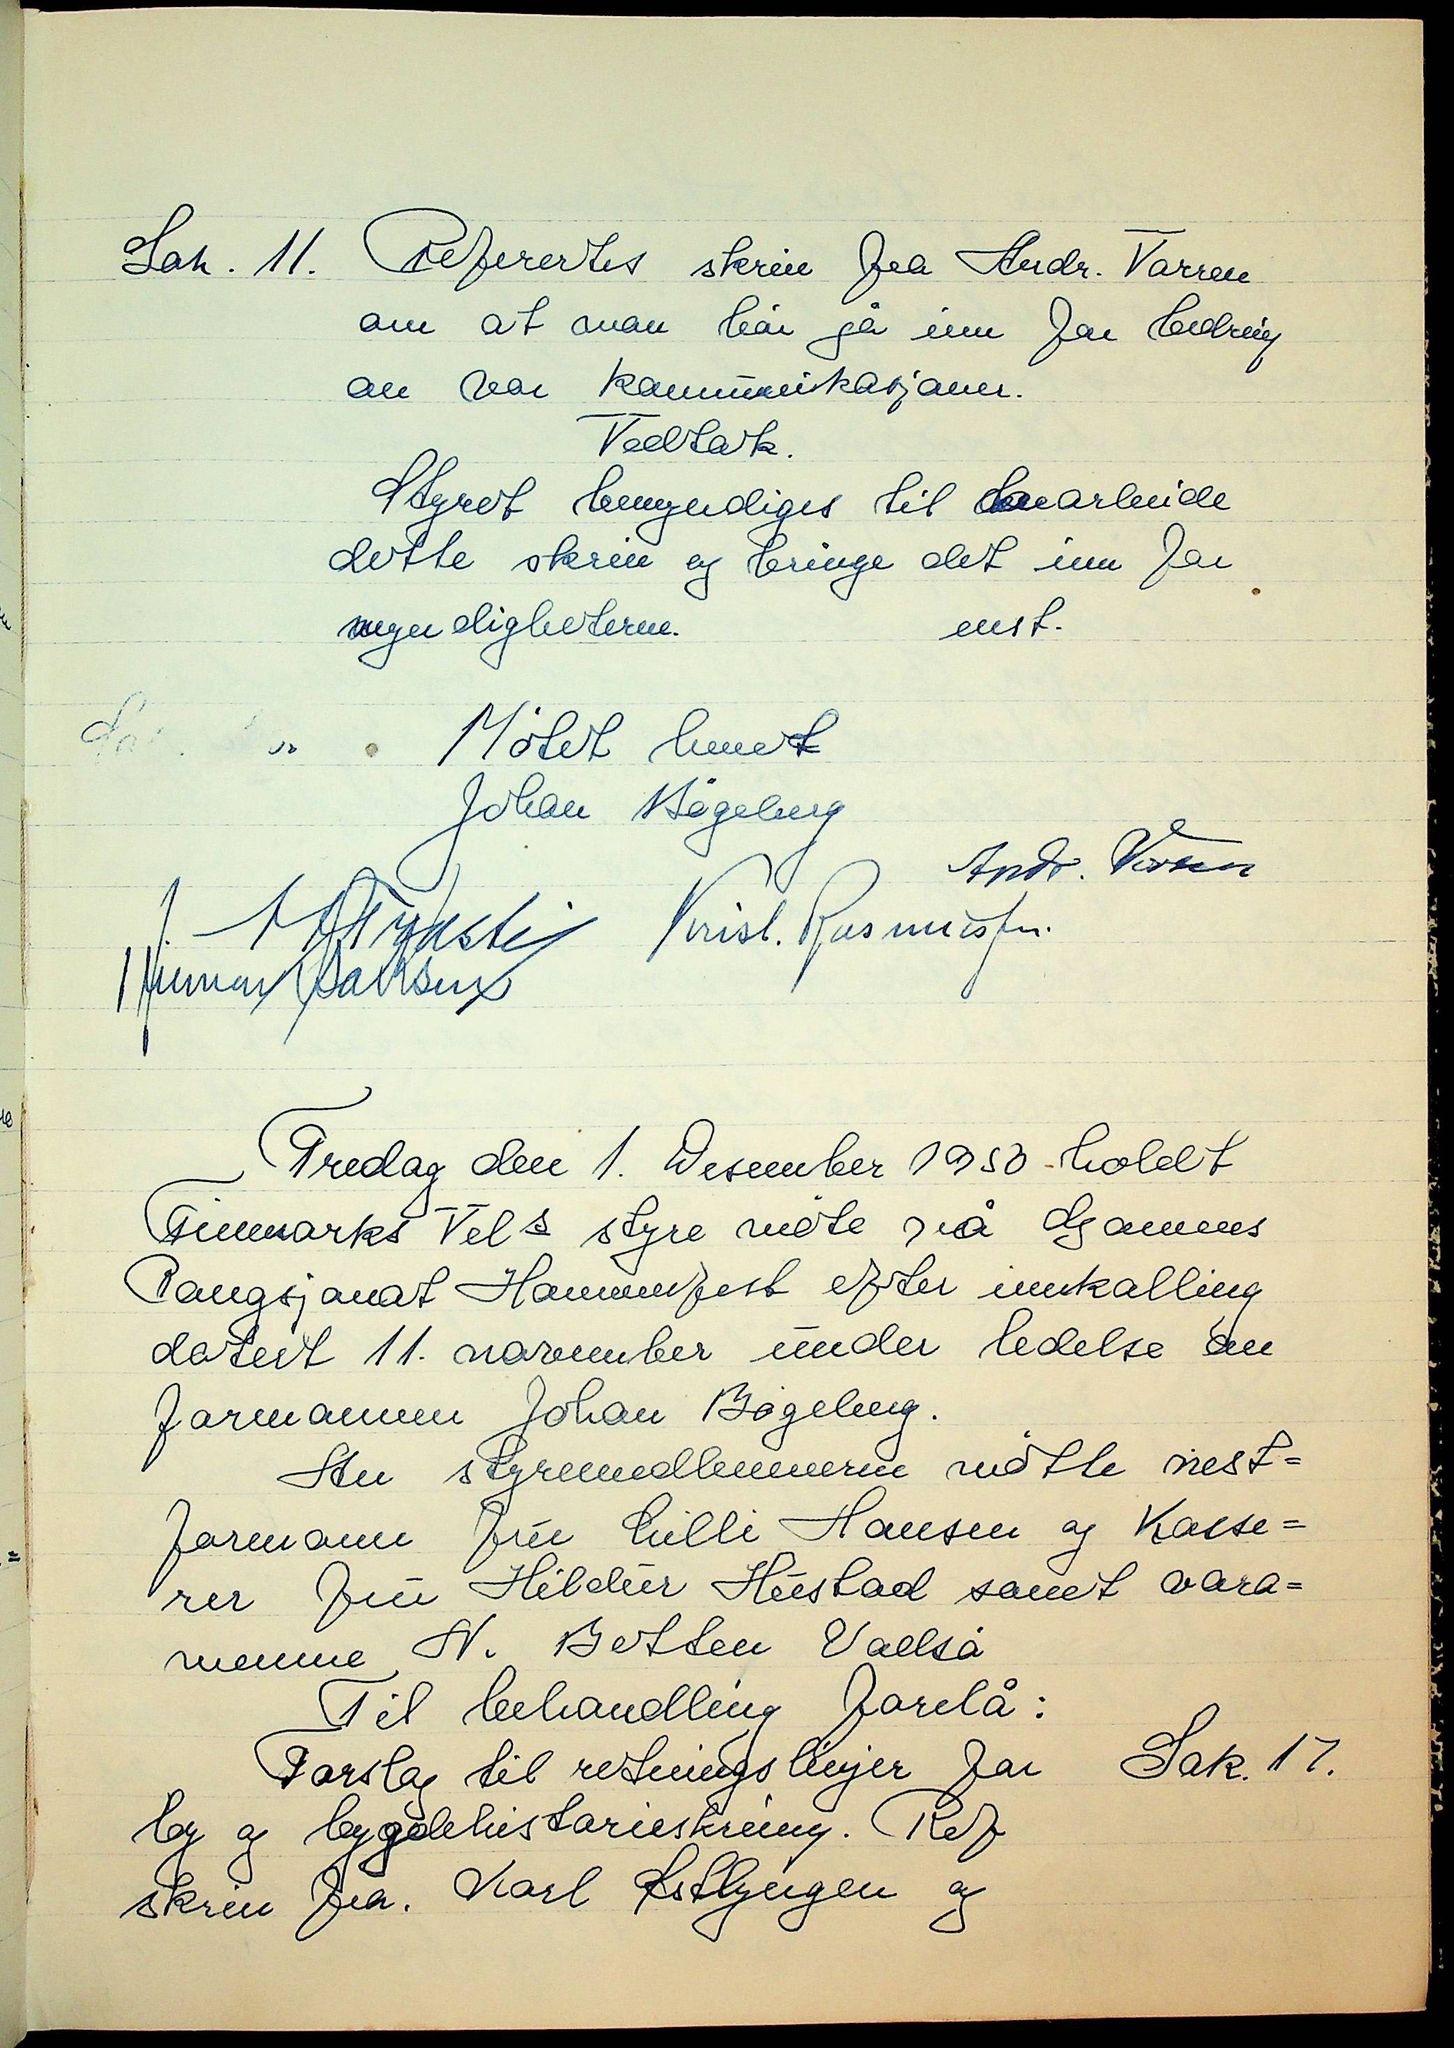 Sak. 11. Referertes skriv fra Andr. Varren
om at man bør gå inn for bedring
av våre kommunikasjoner.
Vedtak.
Styret bemyndiges til å omarbeide
dette skriv og bringe det inn for
myndighetene. enst.
Møtet hevet
Johan Bøgeberg
Andr.
Krist. Rasmussen.
Fredag den 1. Desember 1950 holdt
Finnmarks Vel s styre møte på Gammens
Pangsjonat Hammerfest efter innkalling
datert 11. november under ledelse av
formannen Johan Bøgeberg.
Av styremedlemmerne møtte nest=
formann fru Lilli Hansen og Kasse=
rer fru Hildur Hustad samt vara=
menne N. Betten Vadsø
Til behandling forelå:
Forslag til retningslinjer for Sak. 17.
by og bygdehistorieskriving. Ref
skriv fra. Karl og